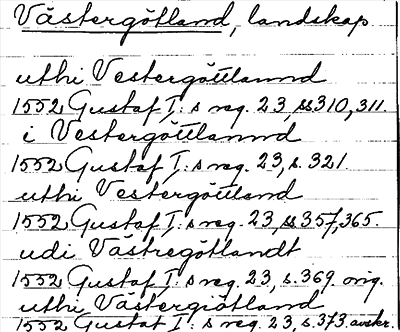 Västergötland, landskap
uthi Vestergöttlannd
1552 Gustaf I:s reg. 23, ss 310, 311.
i Vestergöttlannd
1552 Gustaf I:s reg. 23, s. 321.
uthi Vestergöttland
1552 Gustaf I:s reg. 23, ss 357, 365.
udi Västregötlandt
1552 Gustaf I:s reg. 23, s. 369. orig.
uthi Västergiötland
1552 Gustaf I:s reg. 23, s. 373 avskr.